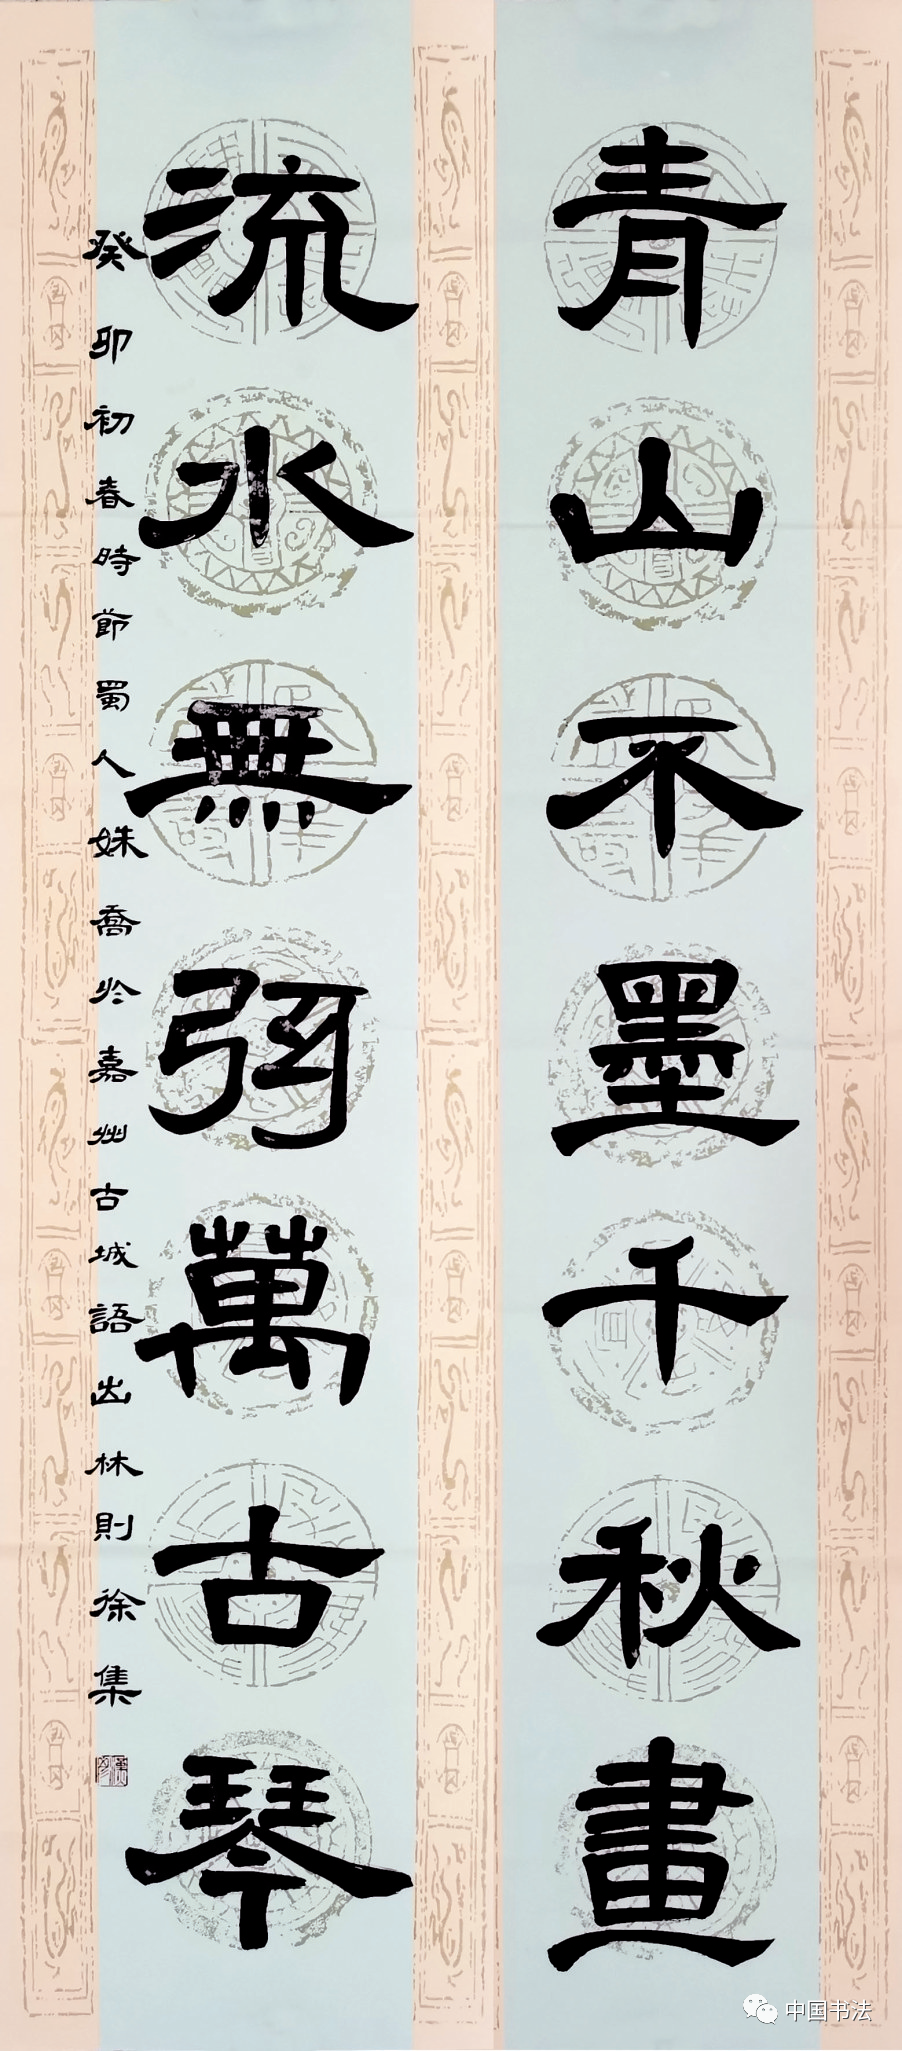 青山不墨千秋畫
流水無弦萬古琴
癸卯初春時節蜀人姝喬於嘉州古城語出林則徐集
中国书法